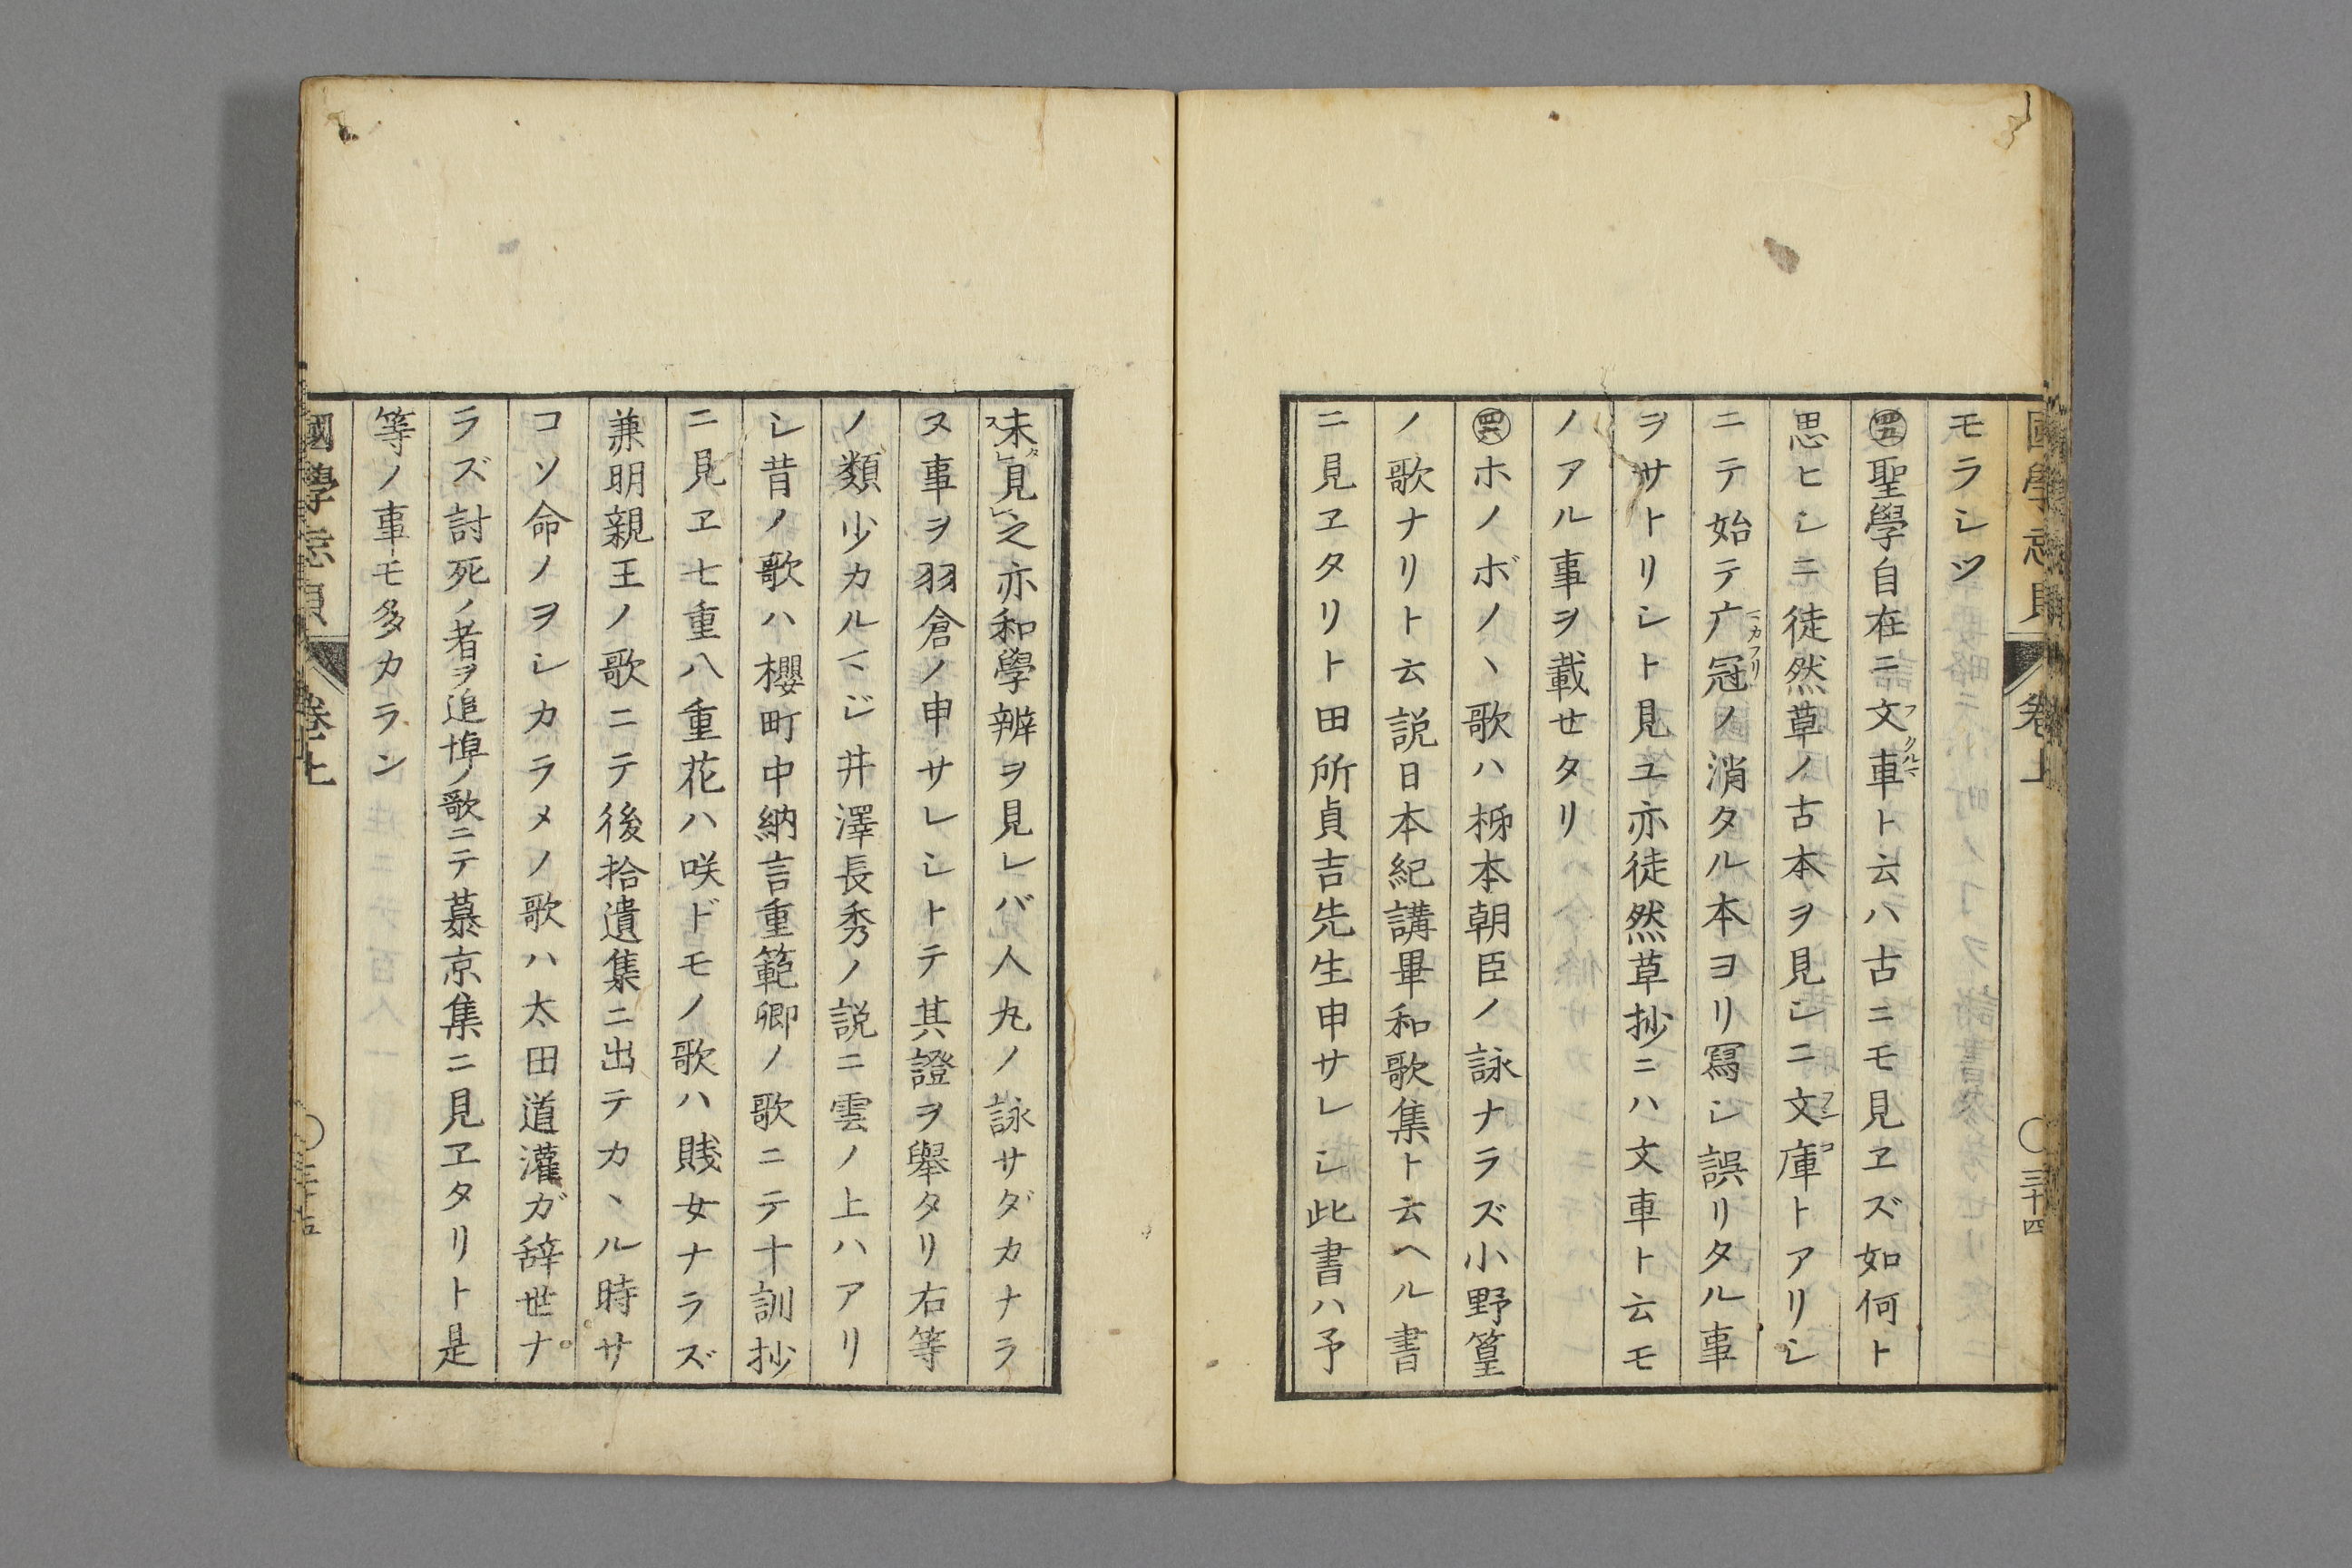 國學忘貝 卷上 ○三十四
モラシツ
㊺聖學自在ニ文車ト云ハ古ニモ見ヱズ如何ト
思ヒシニ徒然草ノ古本ヲ見シニ文庫トアリシ
ニテ始テ广冠ノ消タル本ヨリ冩シ誤リタル事
ヲサトリシト見ユ亦徒然草抄ニハ文車ト云モ
ノアル事ヲ載セタリ
㊻ホノボノヽ歌ハ柹本朝臣ノ詠ナラズ小野篁
ノ歌ナリト云説日本紀講畢和歌集ト云ヘル書
ニ見ヱタリト田所貞吉先生申サレシ此書ハ予
未見之亦和學辨ヲ見レバ人丸ノ詠サダカナラ
ヌ事ヲ羽倉ノ申サレシトテ其證ヲ舉タリ右等
ノ類少カルヽジ井澤長秀ノ説ニ雲ノ上ハアリ
シ昔ノ歌ハ櫻町中納言重範卿ノ歌ニテ十訓抄
ニ見ヱ七重八重花ハ咲ドモノ歌ハ賎女ナラズ
兼明親王ノ歌ニテ後拾遺集ニ出テカヽル時サ
コソ命ノヲシカラメノ歌ハ太田道灌ガ辞世ナ
ラズ討死ノ者ヲ追悼ノ歌ニテ慕京集ニ見ヱタリト是
等ノ事モ多カラン
國學忘貝 卷上 ○三十五